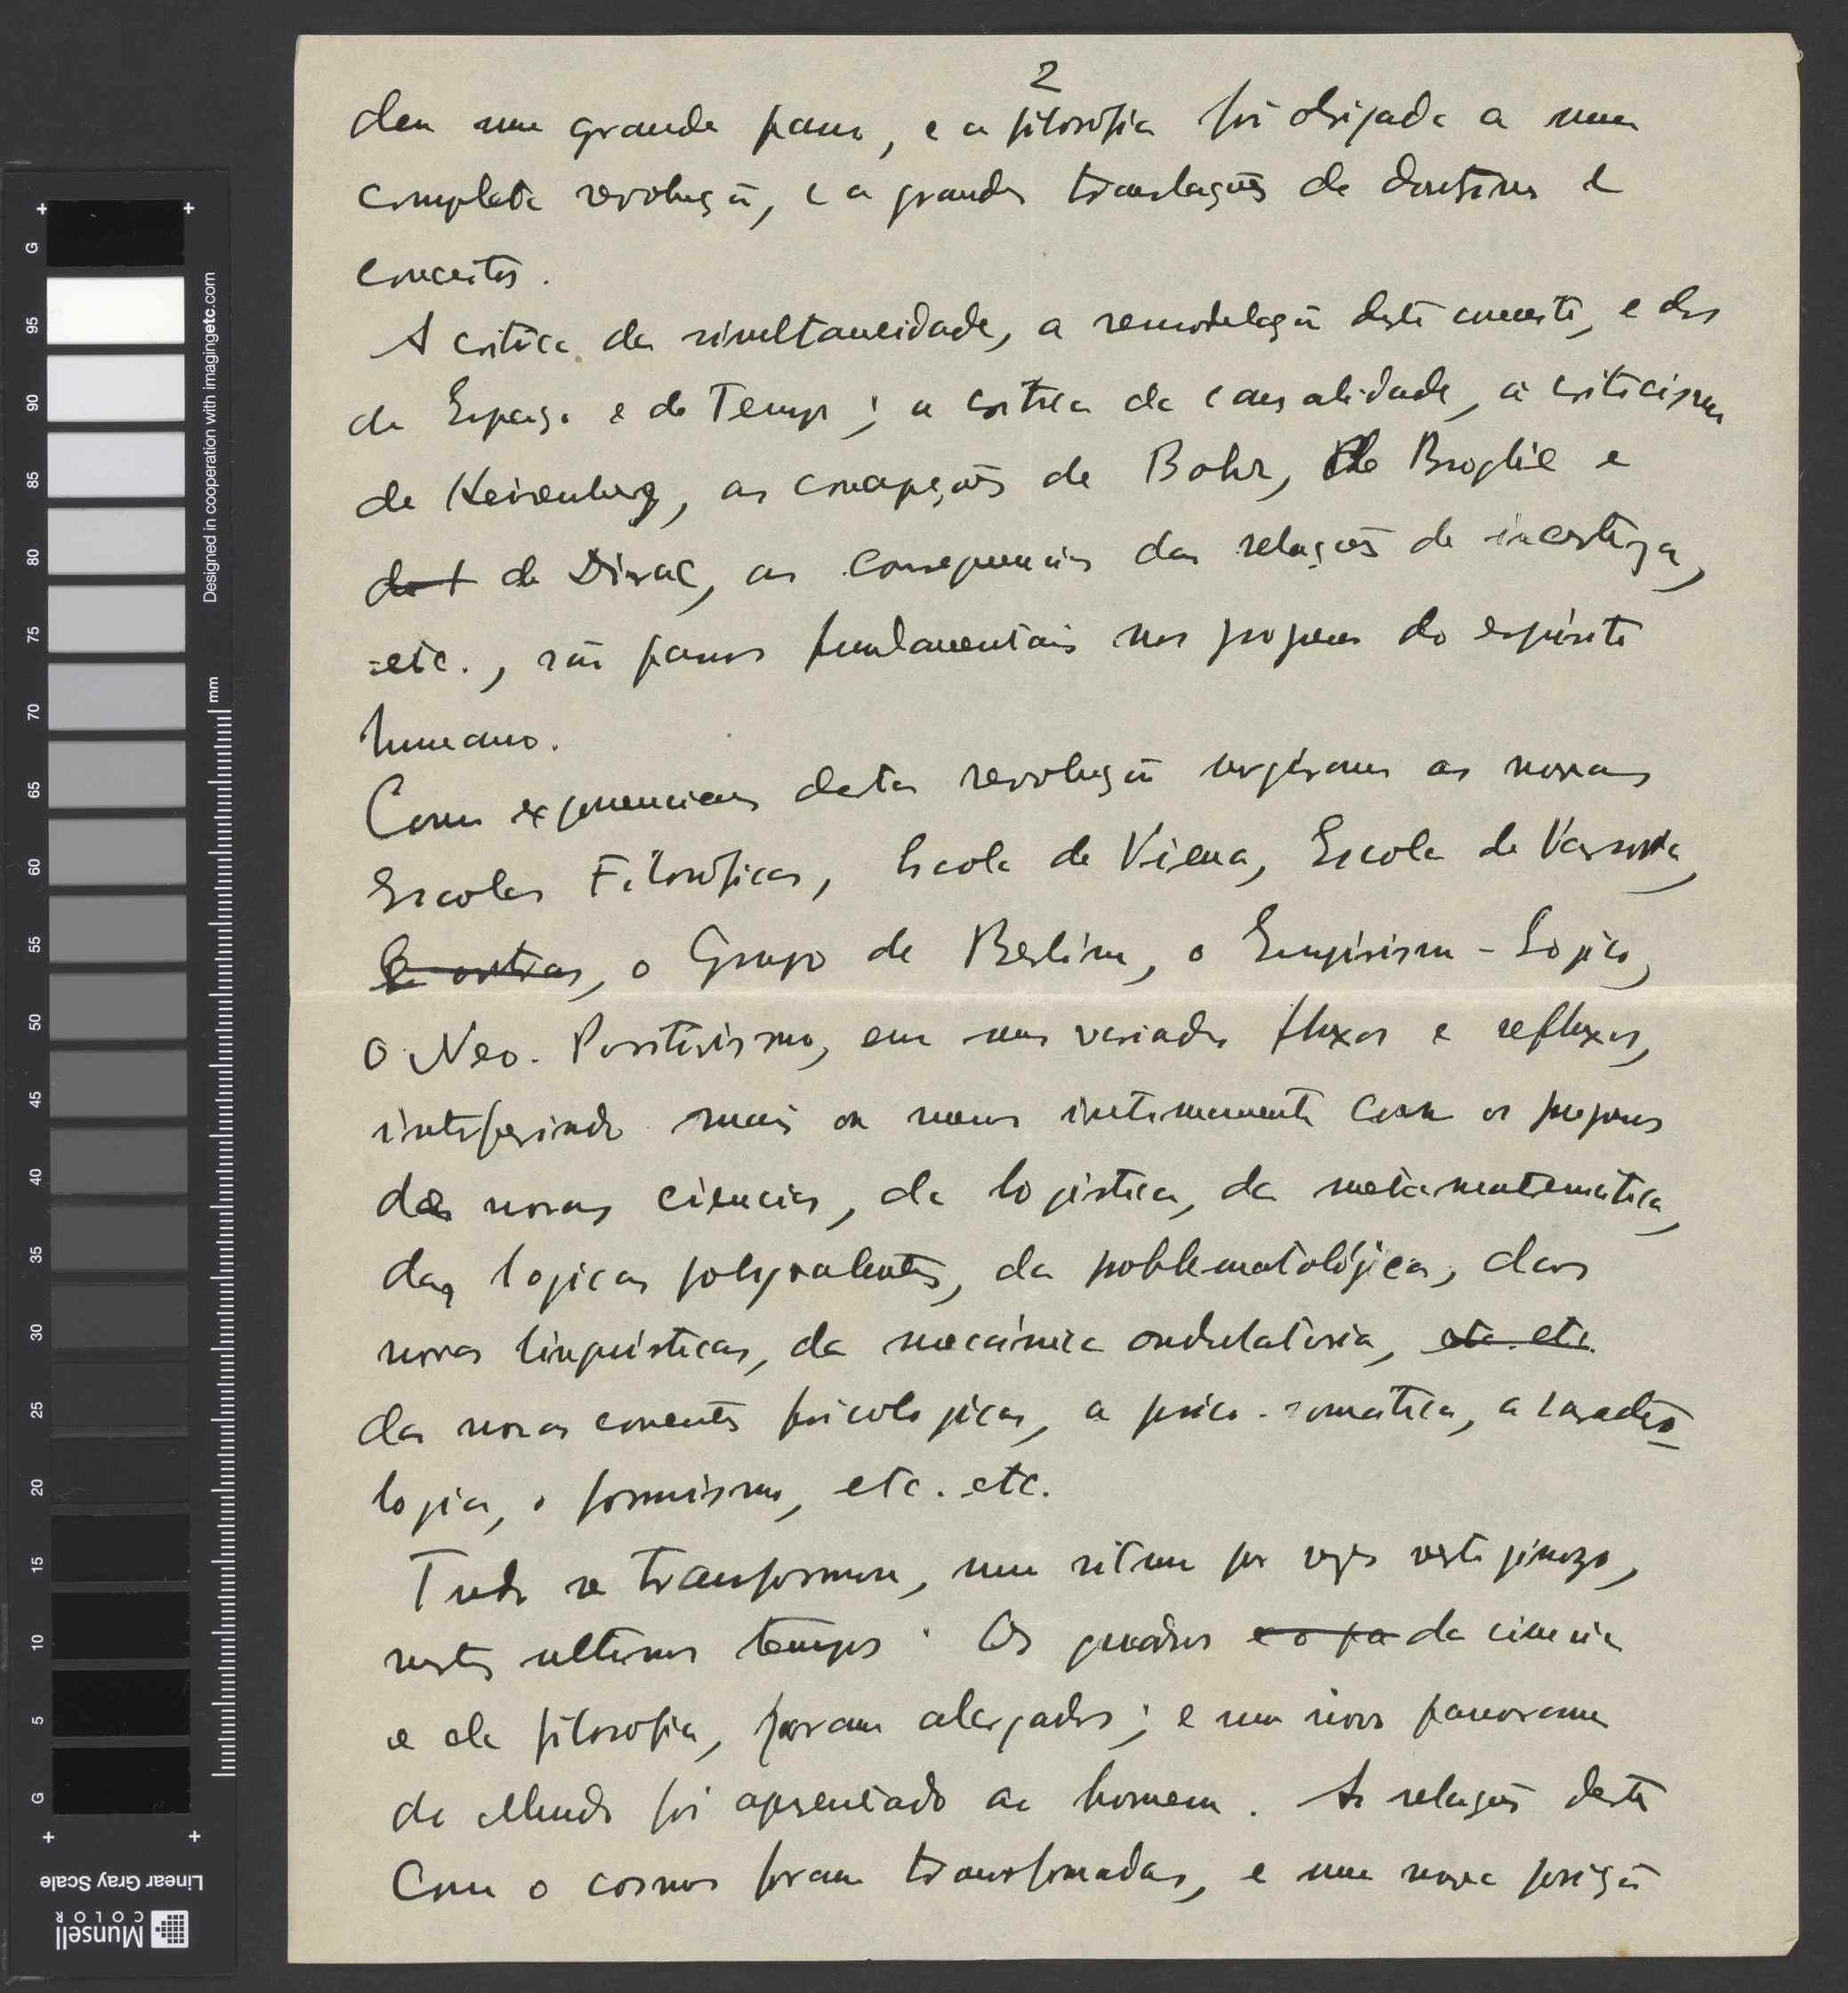 2
deu um grande passo, e a filosofia foi obrigada a uma
completa revolução, e a grandes translações de doutrina e
conceitos.
A critica da simultaneidade, a remodelação deste conceito, e dos
de Espaço e do Tempo; a critica da causalidade, o criticismo
de Heisenberg, as concepções de Bohr, De Broglie e
de de Dirac, as consequencias das relações de incerteza,
etc., são passos fundamentais nos progressos do espirito
humano.
Como exponenciais desta revolução surgiram as novas
Escolas Filosóficas, Escola de Viena, Escola de Varsovia,
e outras, o Grupo de Berlim, o Empirismo-Logico,
o Neo-Positivismo, em seus variados fluxos e refluxos,
interferindo mais ou menos intimamente com os progressos
das novas ciencias, da logistica, da metamatematica,
das logicas polyvalentes, da problematológica, das
novas linguisticas, da mecânica ondulatoria, etc. etc.
das novas correntes psicologicas, a psico-somatica, a caracteo
logia, o formismo, etc. etc.
Tudo se transformou, num ritmo por vezes vertiginozo,
nestes ultimos tempos. Os quadros e o pa da ciencia
e da filosofia, foram alargados; e um novo panorama
do Mundo foi apresentado ao homem. As relações deste
com o cosmos foram transformadas, e uma nova posição
G
95
90
85
80
75
70
65
60
55
50
45
40
35
30
25
20
15
10
5
G
mm
Designed in cooperation with imagingetc.com
Linear Gray Scale
Munsell
COLOR